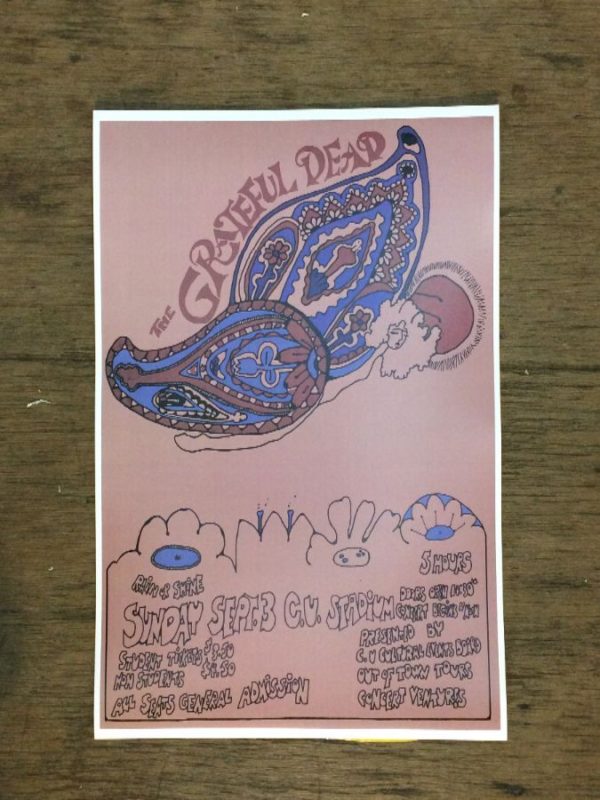 THE GRATEFUL DEAD
5 HOURS
RAIN OR SHINE
SUNDAY SEPT. 3 C.U. STADIUM
DOORS OPEN
CONCERT BEGINS
STUDENT TICKETS $3.50
NON STUDENTS $4.50
ALL SEATS GENERAL ADMISSION
PRESENTED BY
C. U CULTURAL EVENTS BOARD
OUT OF TOWN TOURS
CONCERT VENTURES